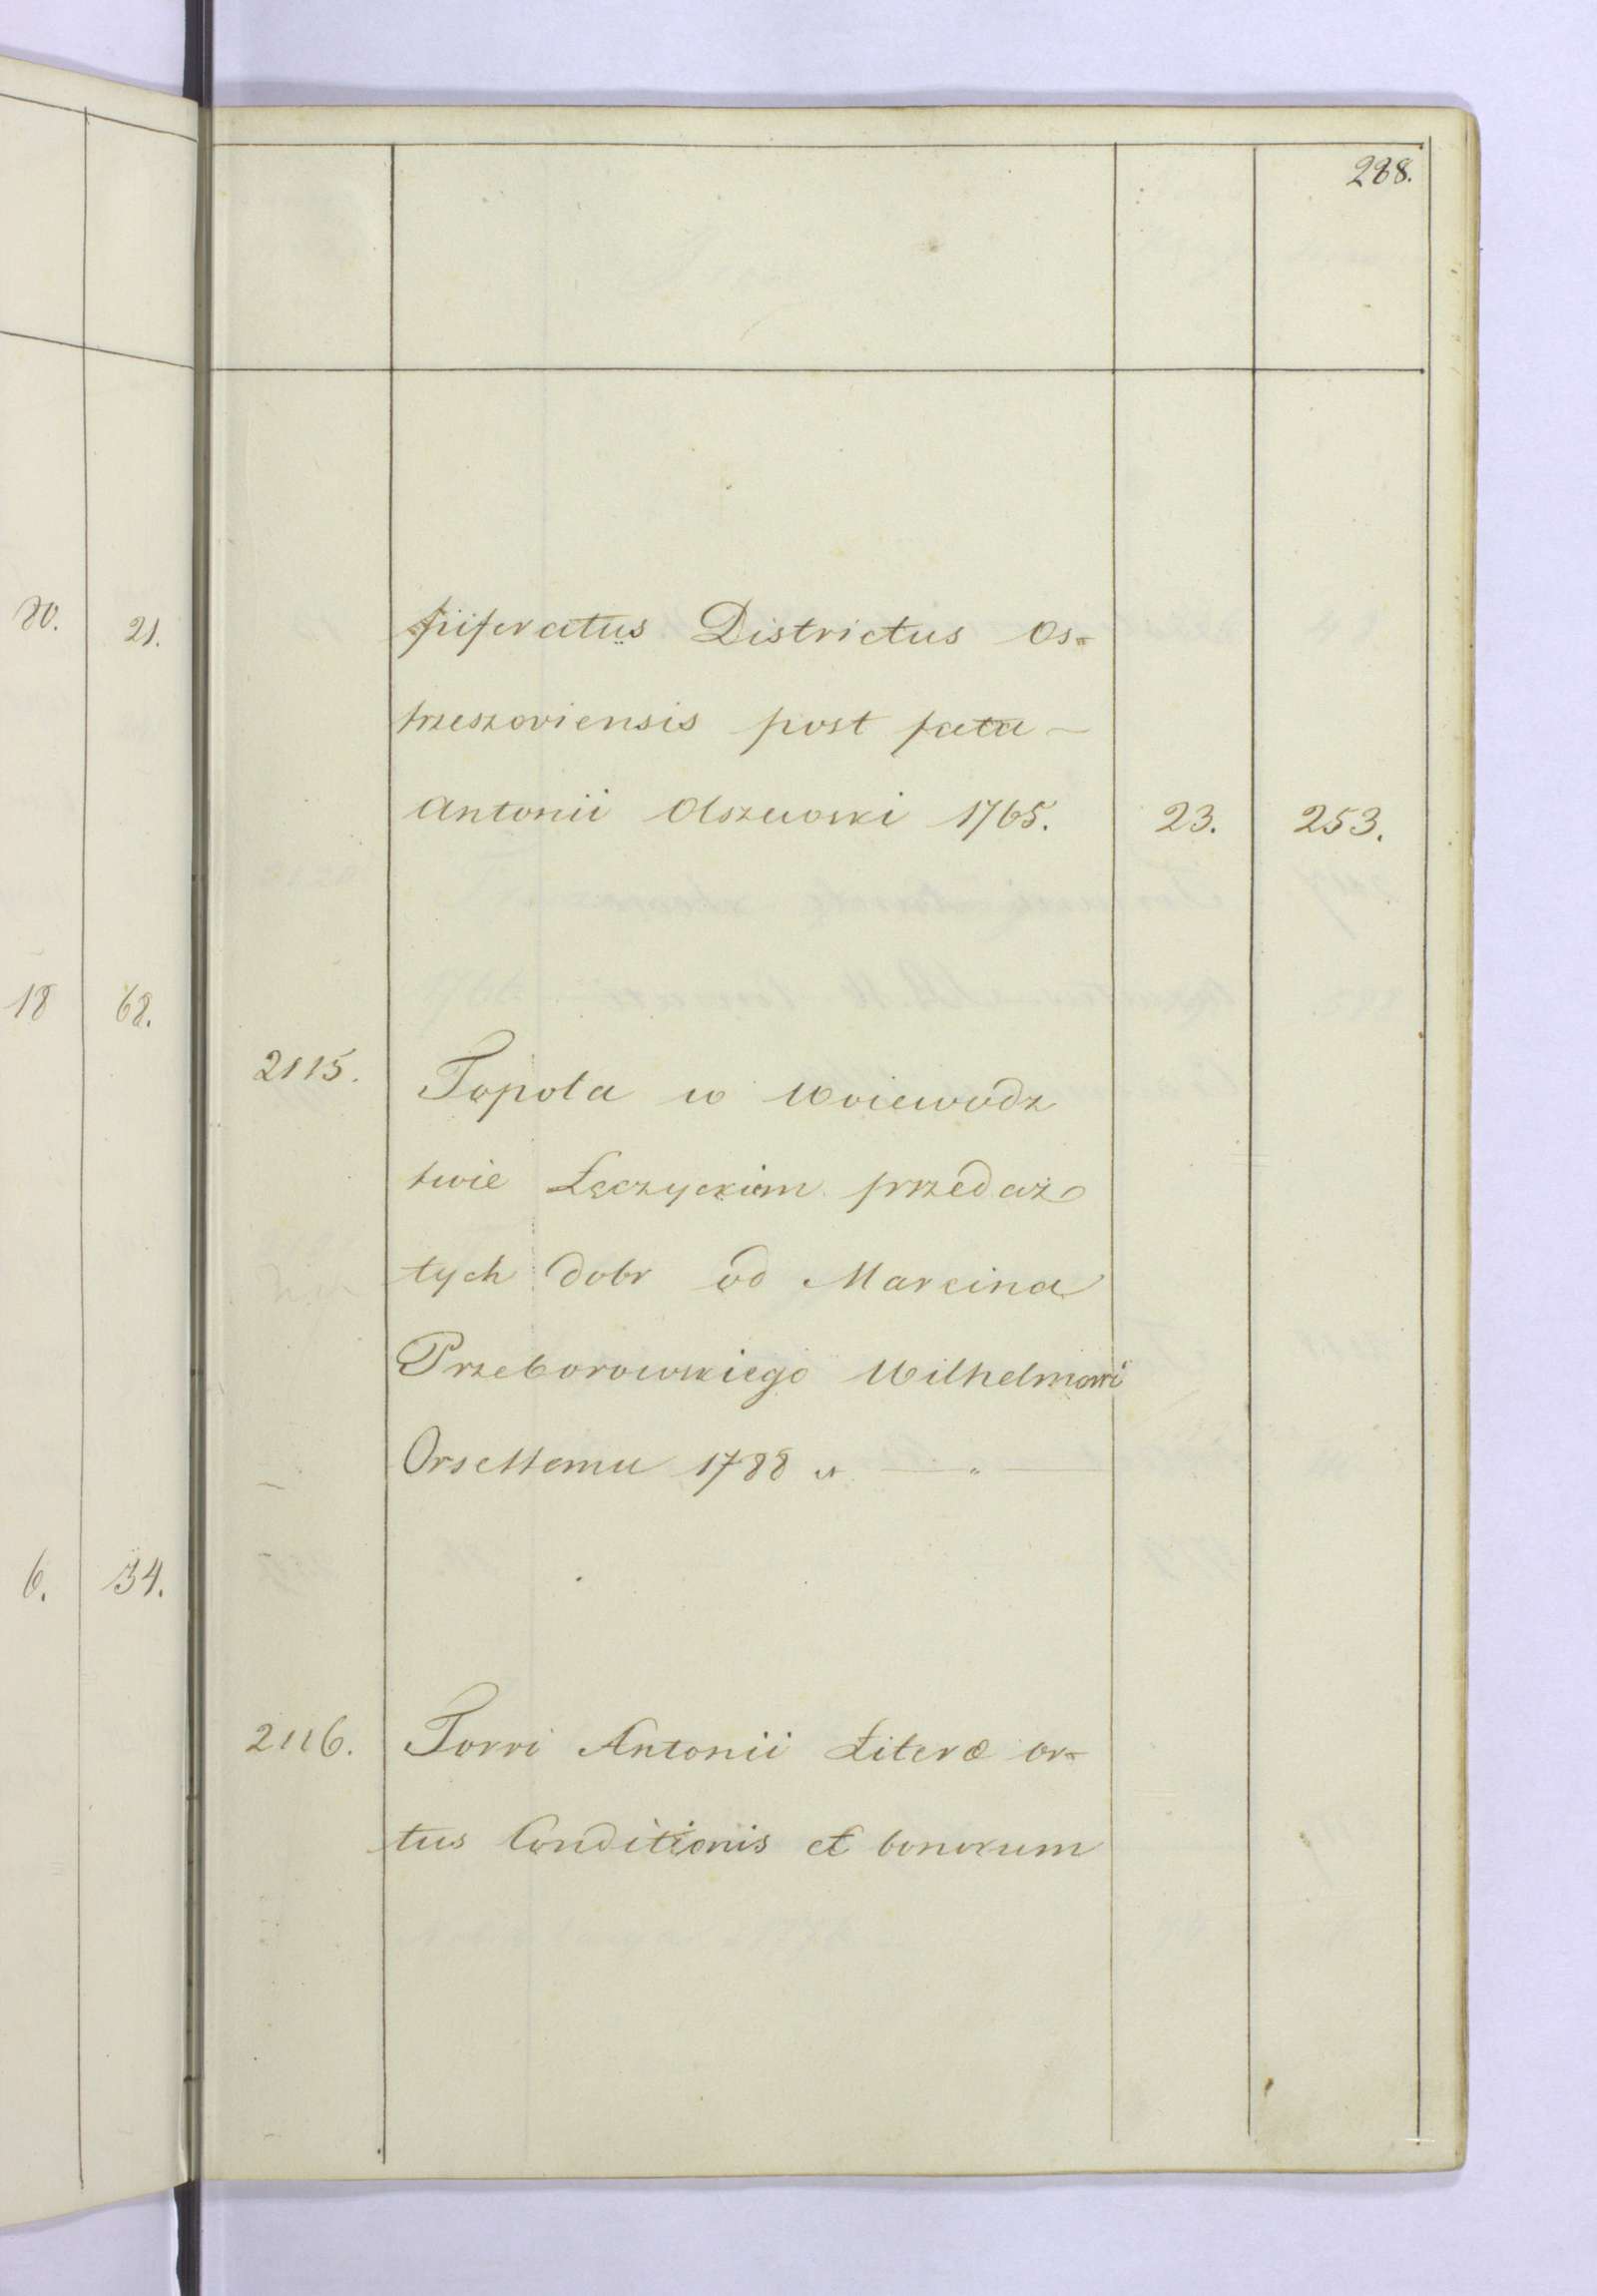 288.
20.
21.
fiiferatus Districtus Os=
trzeszoviensis post fata —
Antonii Olszewski 1765.
23.
253.
18
68.
2115.
Topola w Woiewodz
twie Łęczyckim przedaż
tych dobr od Marcina
Przeborowskiego Wilhelmowi
Orsettemu 1788 " — " —
6.
34.
2116.
Torri Antonii Literæ or=
tus Conditionis et bonorum